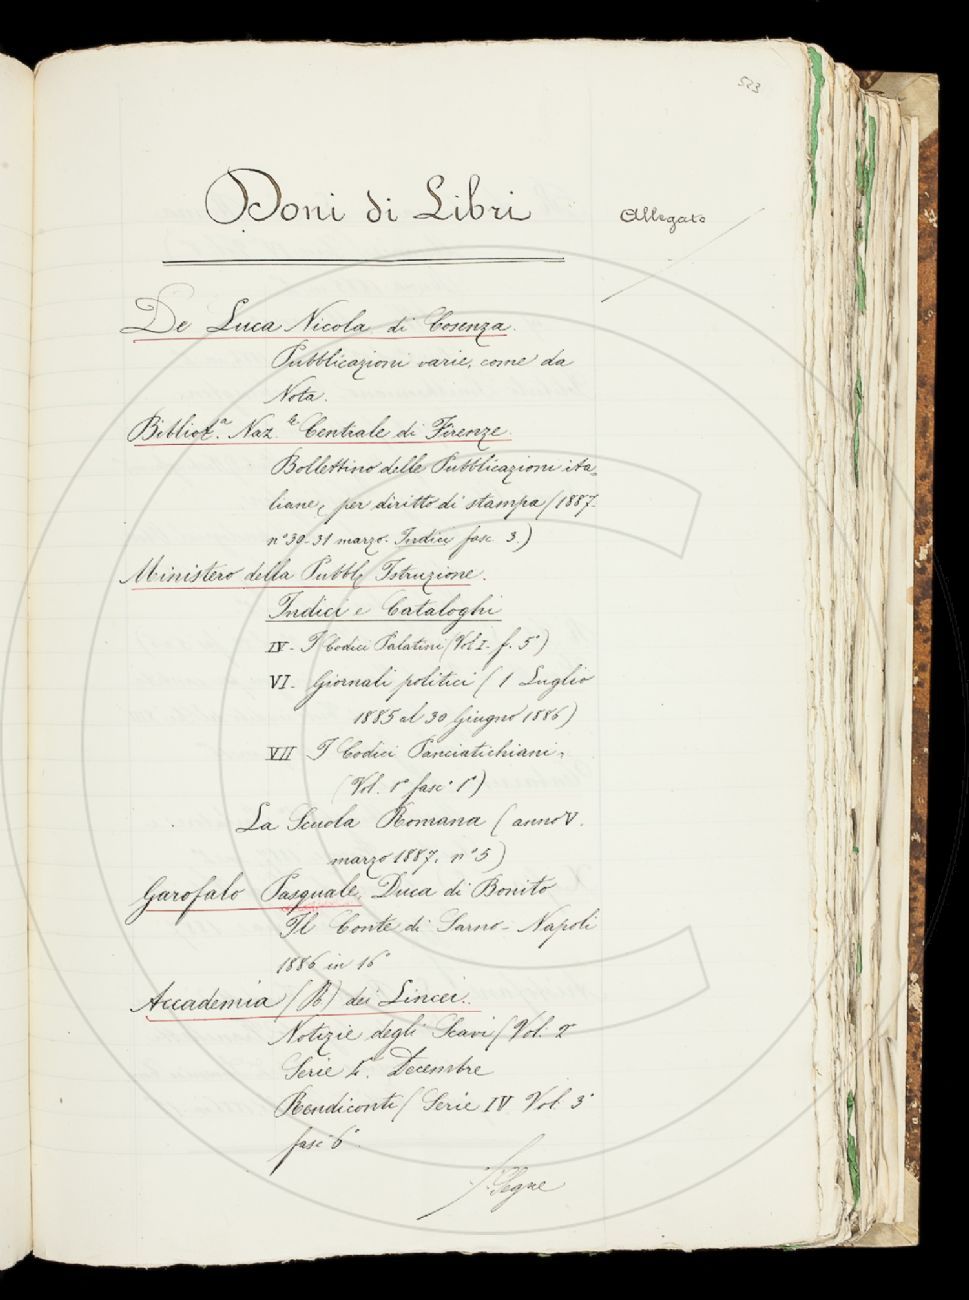 523
Doni di Libri
Allegato
De Luca Nicola di Cosenza.
Pubblicazioni varie, come da
Nota.
Bibliot.ª Naz.le Centrale di Firenze
Bollettino delle Pubblicazioni ita=
liane, per diritto di stampa (1887-
nº 30-31 marzo. Indici fasc. 3.)
Ministero della Pubbl. Istruzione.
Indici e Cataloghi
IV- I Codici Palatini (Vol. I- f. 5º)
VI- Giornali politici (1 Luglio
1885 al 30 Giugno 1886)
VII I Codici Panciatichiani,
(Vol. 1º fasc. 1º)
La Scuola Romana (anno V.
marzo 1887. nº 5)
Garofalo Pasquale, Duca di Bonito
Il Conte di Sarno - Napoli
1886 in 16º
Accademia (R) dei Lincei.
Notizie degli Scavi (Vol. 2º
Serie 4ª. Decembre
Rendiconti (Serie IV Vol. 3º
fasc. 6º.
Segue